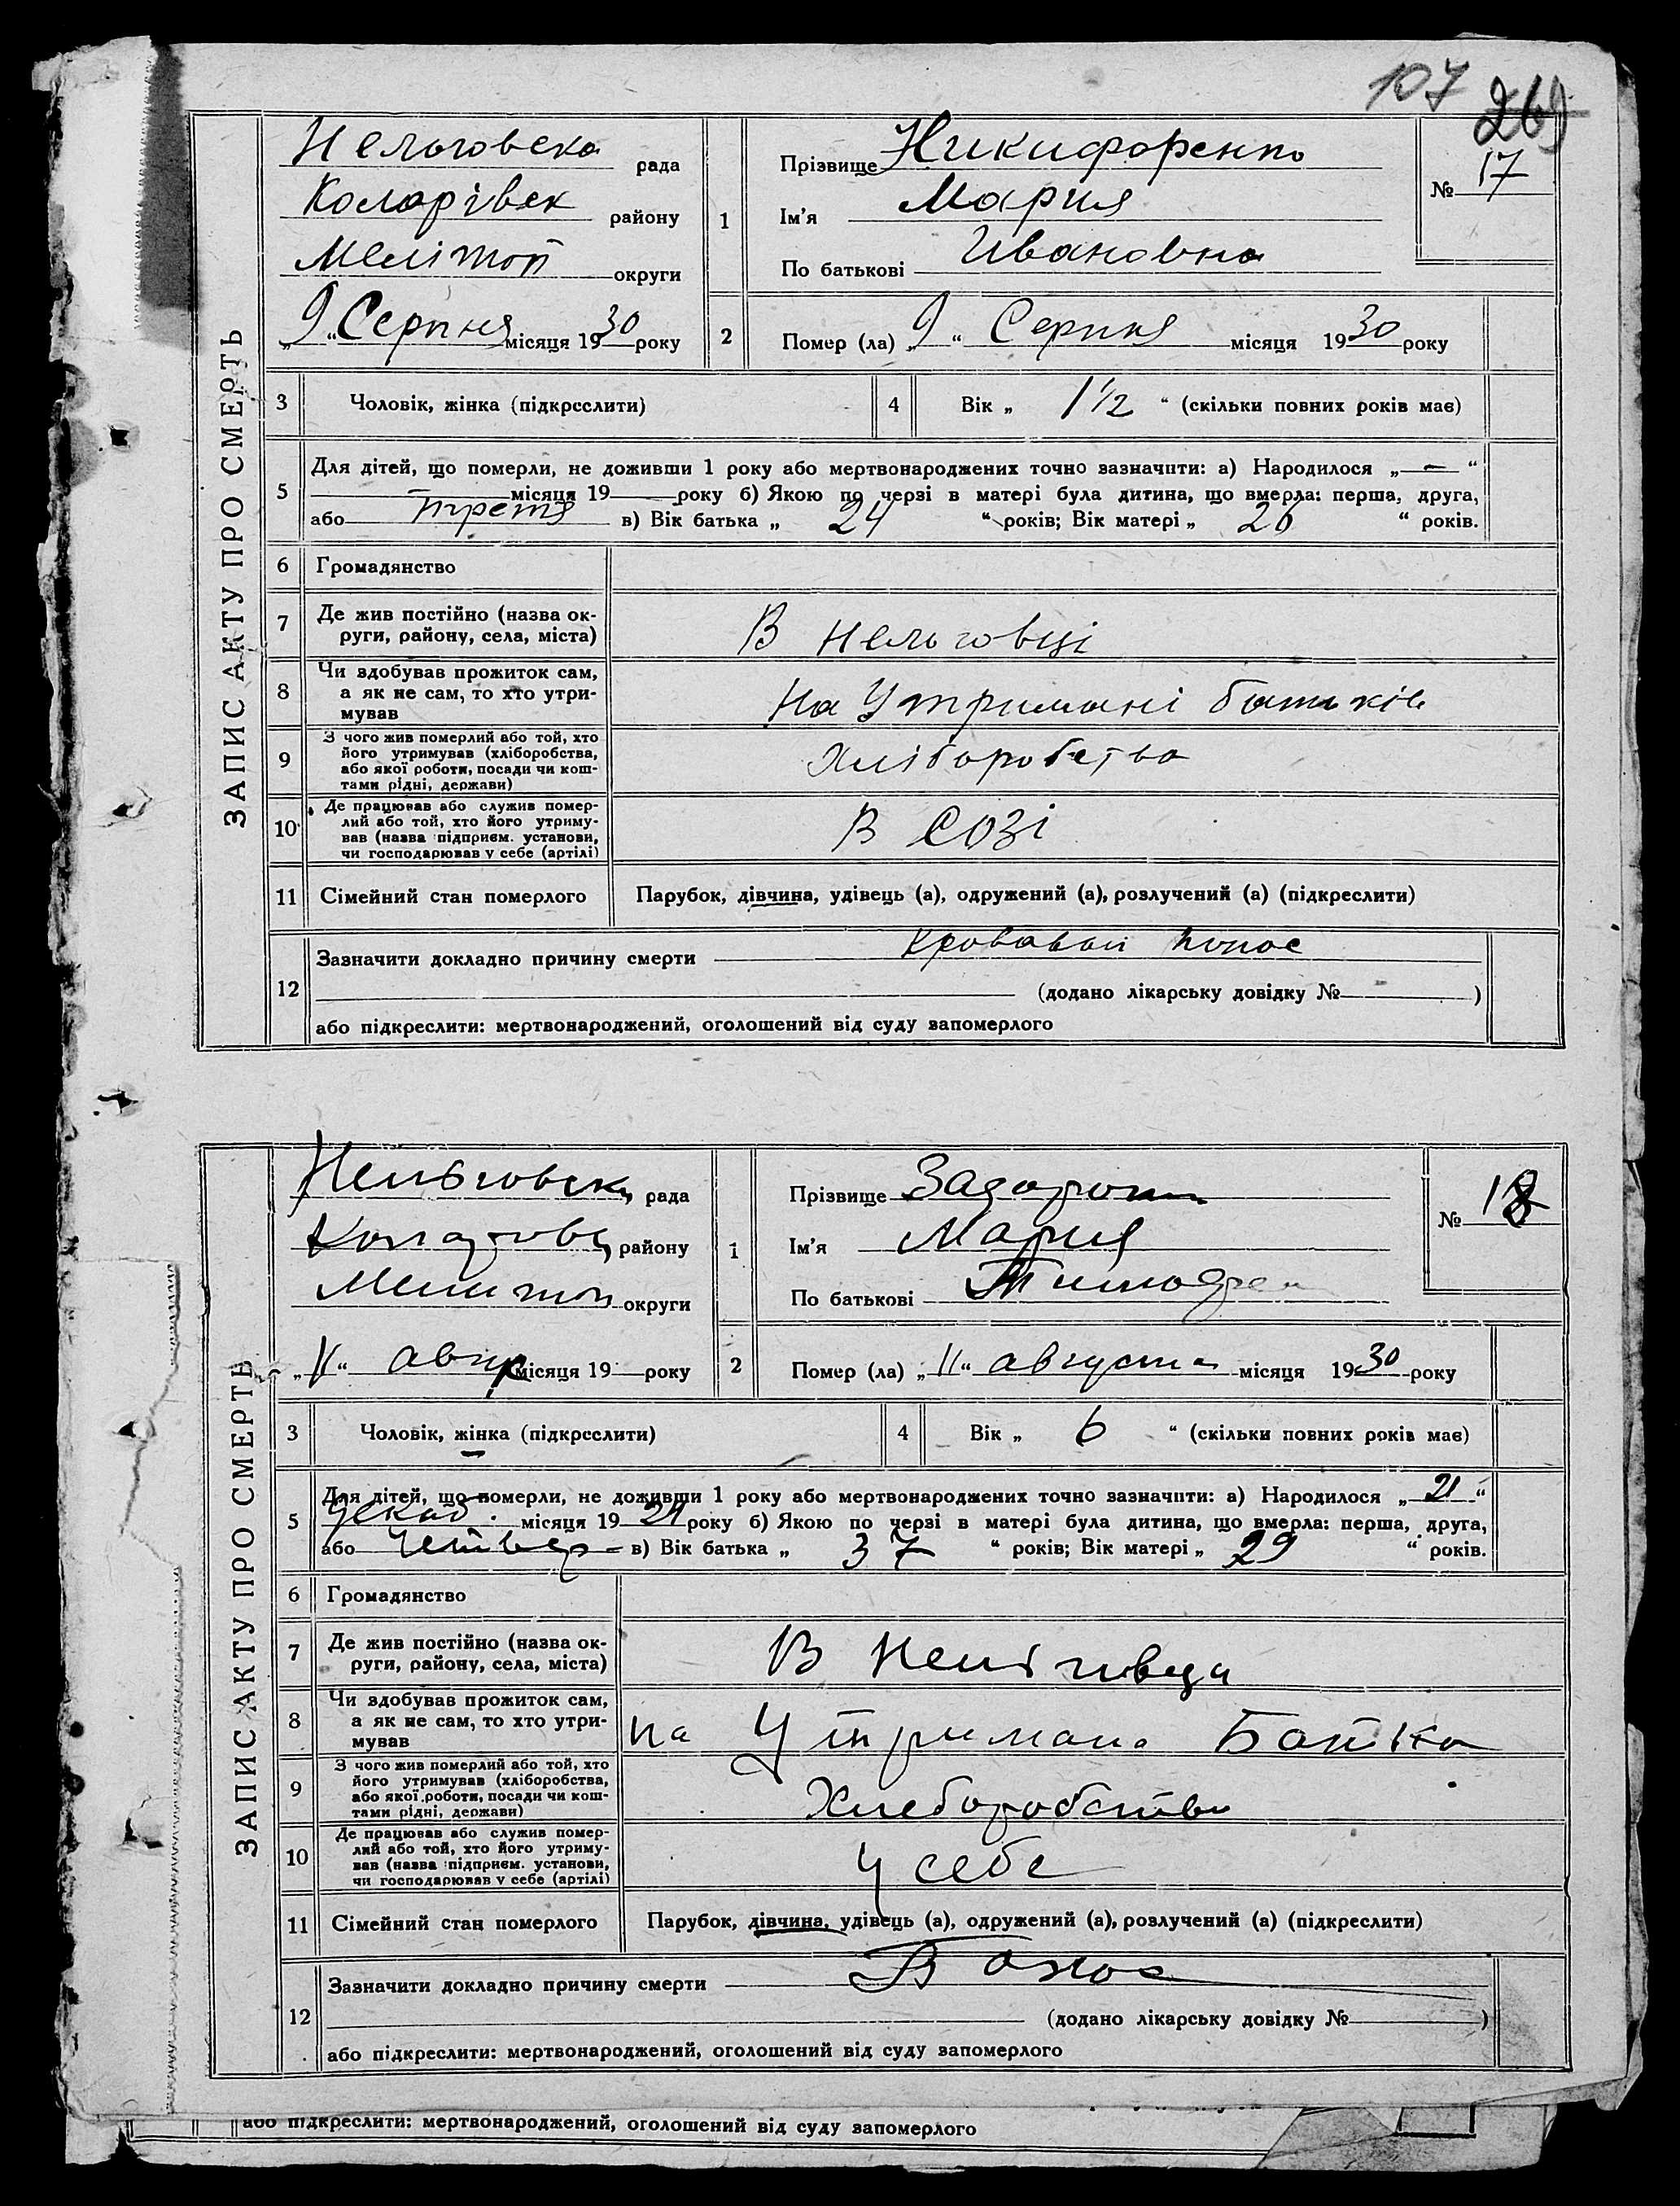 107 269
ЗАПИС АКТУ ПРО СМЕРТЬ
Нельговска рада
Коларівск району
Мелітоп округи
„9“ Серпня місяця 1930 року
1
Прізвище Никифоренко
Ім'я Мария
По батькові Ивановна
№ 17
2 Помер (ла) „9“ Серпня місяця 1930 року
3 Чоловік, жінка (підкреслити)
4 Вік „ 1 1/2 “ (скільки повних років має)
5 Для дітей, що померли, не доживши 1 року або мертвонароджених точно зазначити: а) Народилося „ — “
місяця 19 року б) Якою по черзі в матері була дитина, що вмерла: перша, друга,
або третя в) Вік батька „ 24 “ років; Вік матері „ 26 “ років.
6 Громадянство
7 Де жив постійно (назва ок-
руги, району, села, міста)
В Нельговці
8 Чи здобував прожиток сам,
а як не сам, то хто утри-
мував
На Утримані батьків
9 З чого жив померлий або той, хто
його утримував (хліборобства,
або якої роботи, посади чи кош-
тами рідні, держави)
Хліборобство
10 Де працював або служив помер-
лий або той, хто його утриму-
вав (назва підприєм. установи,
чи господарював у себе (артілі)
В СОЗі
11 Сімейний стан померлого Парубок, дівчина, удівець (а), одружений (а), розлучений (а) (підкреслити)
12 Зазначити докладно причину смерти Кровавой понос
(додано лікарську довідку № )
або підкреслити: мертвонароджений, оголошений від суду запомерлого
ЗАПИС АКТУ ПРО СМЕРТЬ
Нельговск рада
району
Мелитоп округи
„11“ авгус місяця 19 року
1
Прізвище
Ім'я Мария
По батькові
№ 18
2 Помер (ла) „11“ августа місяця 1930 року
3 Чоловік, жінка (підкреслити)
4 Вік „ 6 “ (скільки повних років має)
5 Для дітей, що померли, не доживши 1 року або мертвонароджених точно зазначити: а) Народилося „ 21 “
Декаб. місяця 1929 року б) Якою по черзі в матері була дитина, що вмерла: перша, друга,
або четвер в) Вік батька „ 37 “ років; Вік матері „ 29 “ років.
6 Громадянство
7 Де жив постійно (назва ок-
руги, району, села, міста)
В
8 Чи здобував прожиток сам,
а як не сам, то хто утри-
мував
На Утримано Батка
9 З чого жив померлий або той, хто
його утримував (хліборобства,
або якої роботи, посади чи кош-
тами рідні, держави)
Хлеборобство
10 Де працював або служив помер-
лий або той, хто його утриму-
вав (назва підприєм. установи,
чи господарював у себе (артілі)
У себе
11 Сімейний стан померлого Парубок, дівчина, удівець (а), одружений (а), розлучений (а) (підкреслити)
12 Зазначити докладно причину смерти
(додано лікарську довідку № )
або підкреслити: мертвонароджений, оголошений від суду запомерлого
або підкреслити: мертвонароджений, оголошений від суду запомерлого